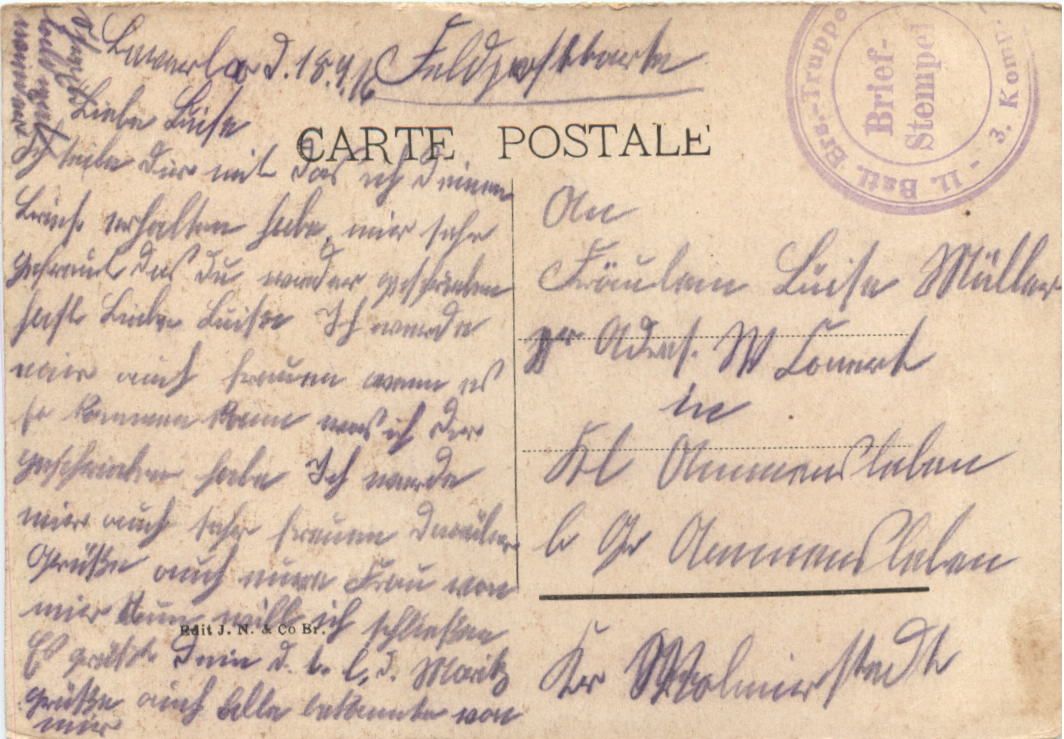 d. 18.4.16 Feldpostkarte
Liebe Luise
CARTE POSTALE
Ich teile dir mit das ich deinen
Brief erhalten habe, mir sehr
gefreut das du wieder geschrieben
hast Liebe Luise Ich werde
mir auch freuen wenn es
so kommen kann was ich dir
geschrieben habe Ich werde
mir auch sehr freuen
Grüße auch eure Frau von
mir Nun will ich schließen
Es grüßt Dein d. l. Moritz
Grüße auch Alle bekannte von
mir
Edit J. N. & Co Br.
Schreibe
bald mal
wieder
An
Fräulein Luise Müller
pr Adres. W
in
Kl Ammensleben
b Gr Ammensleben
Kr Wolmirstedt
II. Batl. Ers.-Truppe
3. Komp.
Brief-
Stempel